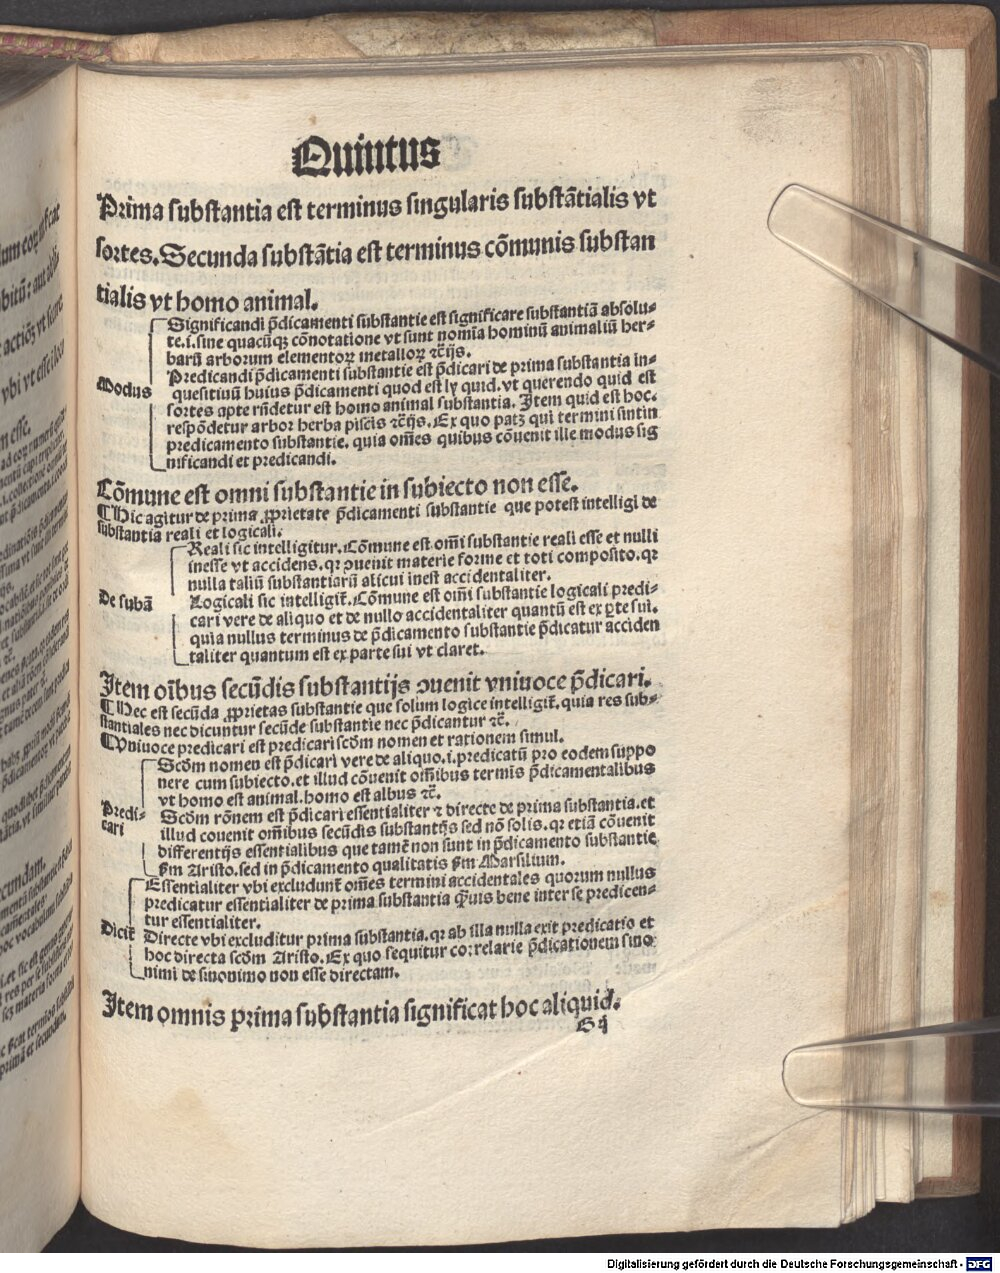 Quintus
Prima substantia est terminus singularis substātialis vt
sortes. Secunda substātia est terminus cōmunis substan
tialis vt homo animal.
Significandi p̄dicamenti substantie est significare substantiā absolu-
te.i.sine quacūqꝫ cōnotatione vt sunt nomia hominū animaliū her-
barū arborum elementoꝝ metalloꝝ ⁊c̄ijs.
Predicandi p̄dicamenti substantie est p̄dicari de prima substantia in-
Modus quesitiuū huius p̄dicamenti quod est ly quid. vt querendo quid est
sortes apte rn̄detur est homo animal substantia. Item quid est hoc.
respōdetur arbor herba piscis ⁊c̄ijs. Ex quo patꝫ qui termini sint in
predicamento substantie. quia om̄es quibus cōuenit ille modus sig
nificandi et predicandi.
Cōmune est omni substantie in subiecto non esse.
¶ Hic agitur de prima ꝓprietate p̄dicamenti substantie que potest intelligi de
substantia reali et logicali.
Reali sic intelligitur. Cōmune est om̄i substantie reali esse et nulli
inesse vt accidens. qꝛ ꝯuenit materie forme et toti composito. qꝛ
nulla taliū substantiarū alicui inest accidentaliter.
De subā Logicali sic intelligit̄. Cōmune est om̄i substantie logicali predi-
cari vere de aliquo et de nullo accidentaliter quantū est ex ꝑte sui.
quia nullus terminus de p̄dicamento substantie p̄dicatur acciden
taliter quantum est ex parte sui vt claret.
Item oībus secūdis substantijs ꝯuenit vniuoce p̄dicari.
¶ Hec est secūda ꝓprietas substantie que solum logice intelligit̄. quia res sub-
stantiales nec dicuntur secūde substantie nec p̄dicantur ⁊c̄.
¶ Vniuoce predicari est predicari scd̄m nomen et rationem simul.
Scd̄m nomen est p̄dicari vere de aliquo.i.predicatū pro eodem suppo
nere cum subiecto. et illud cōuenit om̄ibus termīs p̄dicamentalibus
vt homo est animal. homo est albus ⁊c̄.
Predi- Scd̄m rōnem est p̄dicari essentialiter ⁊ directe de prima substantia. et
cari illud couenit om̄ibus secūdis substantijs sed nō solis. qꝛ etiā cōuenit
differentijs essentialibus que tamē non sunt in p̄dicamento substantie
ẜm Aristo. sed in p̄dicamento qualitatis ẜm Marsilium.
Essentialiter vbi excludunt̄ om̄es termini accidentales quorum nullus
predicatur essentialiter de prima substantia q̄uis bene inter se predicen-
tur essentialiter.
Dicit̄ Directe vbi excluditur prima substantia. qꝛ ab illa nulla exit predicatio et
hoc directa scd̄m Aristo. Ex quo sequitur correlarie p̄dicationem sino
nimi de sinonimo non esse directam.
Item omnis prima substantia significat hoc aliquid.
Digitalisierung gefördert durch die Deutsche Forschungsgemeinschaft - DFG